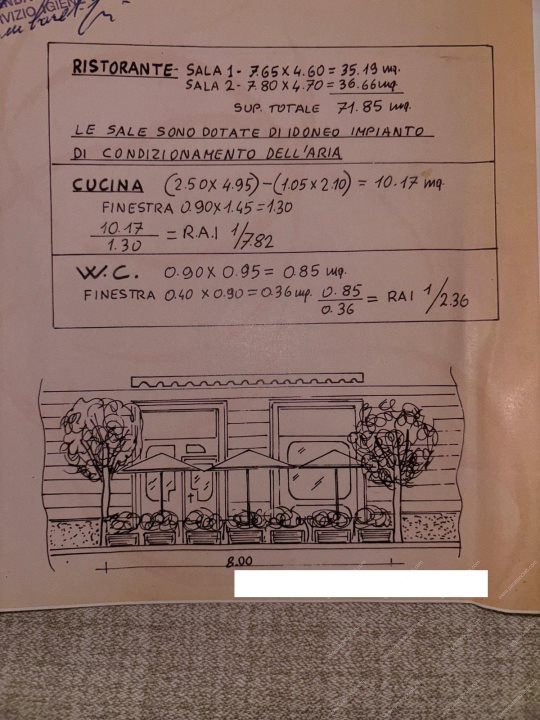 RVIZIO IGIEN
RISTORANTE- SALA 1- 7.65 X 4.60 = 35.19 mq.
SALA 2- 7.80 X 4.70 = 36.66 mq
SUP. TOTALE 71.85 mq.
LE SALE SONO DOTATE DI IDONEO IMPIANTO
DI CONDIZIONAMENTO DELL'ARIA
CUCINA (2.50 X 4.95) - (1.05 X 2.10) = 10.17 mq.
FINESTRA 0.90 X 1.45 = 1.30
10.17/1.30 = R.A.I 1/7.82
W.C. 0.90 X 0.95 = 0.85 mq.
FINESTRA 0.40 X 0.90 = 0.36 mq. 0.85/0.36 = RAI 1/2.36
8.00